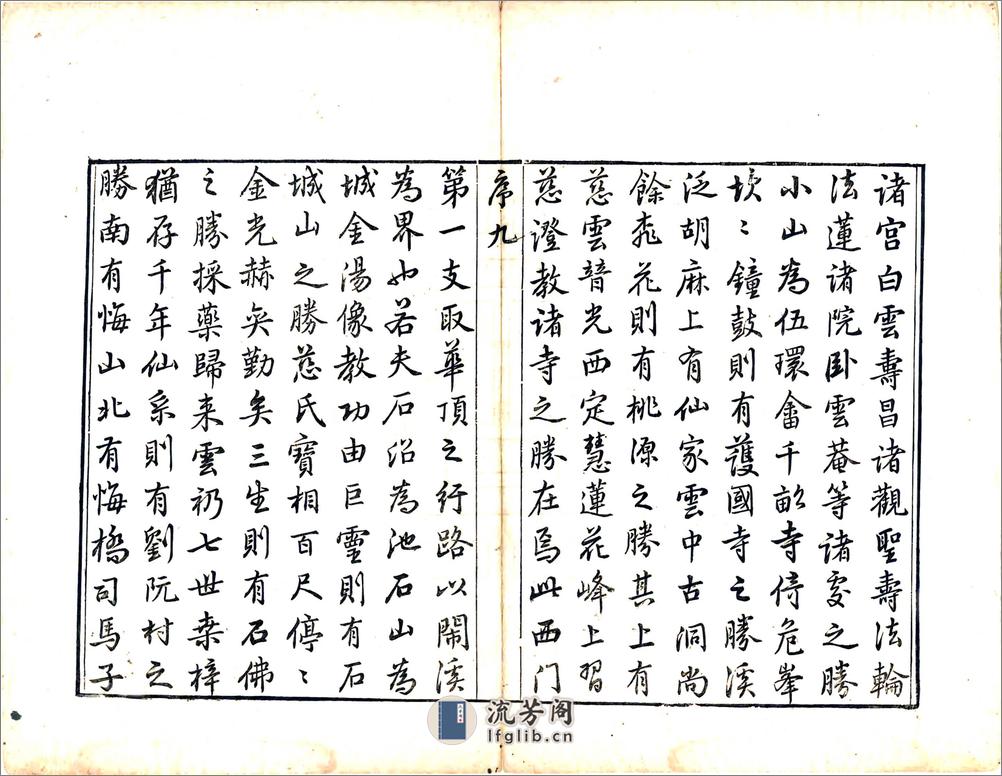 诸宫白雲壽昌诸觀聖壽法輪
法蓮诸院卧雲菴等诸䖏之勝
小山為伍環畬千畝寺倚危峯
坎〻鐘鼓則有護國寺之勝溪
泛胡麻上有仙家雲中古洞尚
餘桃花則有桃源之勝其上有
慈雲普光西定慧蓮花峰上習
慈證教诸寺之勝在焉此西门
序九
第一支取華頂之行路以關溪
為界如若夫石沼為池石山為
城金湯像教功由巨靈則有石
城山之勝慈氏寶相百尺停〻
金光赫奕勤矣三生則有石佛
之勝採藥歸来雲礽七世桑梓
猶存千年仙系則有劉阮村之
勝南有悔山北有悔橋司馬子
流芳阁
lfglib.cn